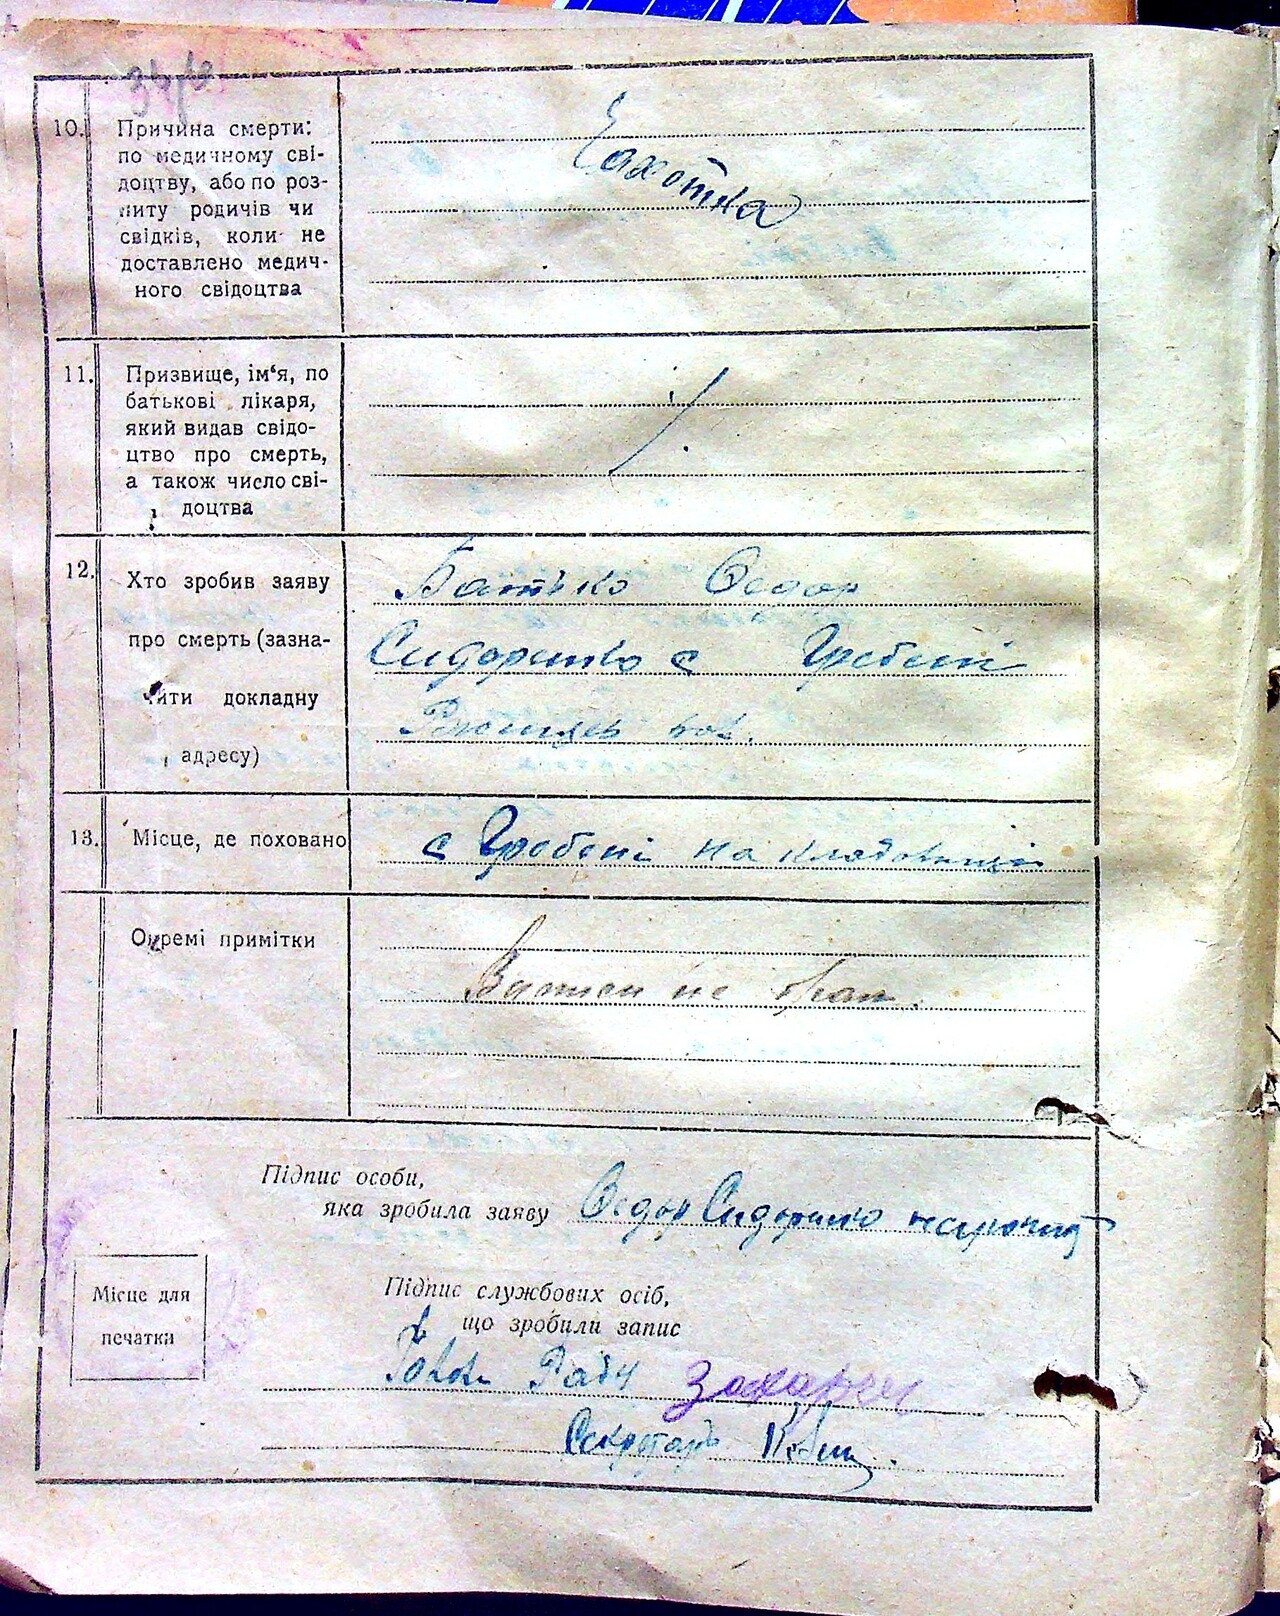 10. Причина смерти:
по медичному сві-
доцтву, або по роз-
питу родичів чи
свідків, коли не
доставлено медич-
ного свідоцтва
Сахотка
11. Призвище, ім‘я, по
батькові лікаря,
який видав свідо-
цтво про смерть,
а також число сві-
доцтва
12. Хто зробив заяву
про смерть (зазна-
чити докладну
адресу)
Батько Федор
Сидоренко с Гребені
Ржищев
13. Місце, де поховано
с Гребені на кладовищі
Окремі примітки
не брали.
Підпис особи,
яка зробила заяву Федор Сидоренко
Місце для
печатки
Підпис службових осіб,
що зробили запис
Голова Ради
Секретарь